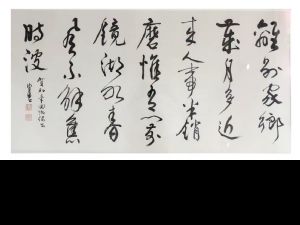 離別家鄉
歲月多近
來人事半銷
磨惟有門前
鏡湖水春
風不改舊
時波